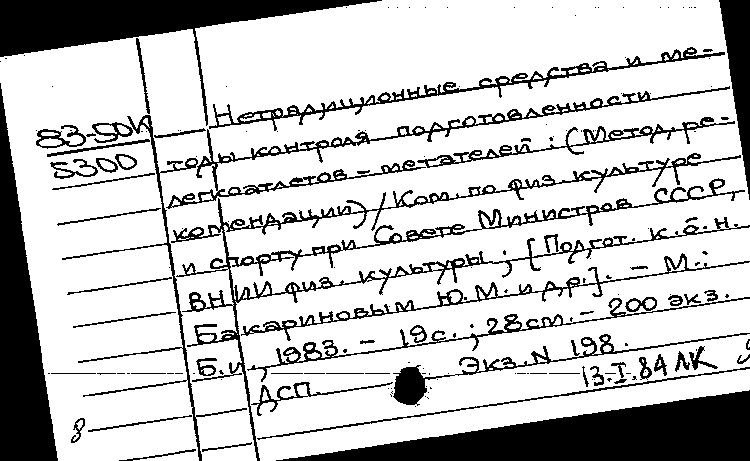 Нетрадиционные средства и ме-
83-50К
5300
тоды контроля подготовленности
легкоатлетов-метателей: (Метод. ре-
комендации) / Ком. по физ. культуре
и спорту при Совете Министров СССР,
ВНИИ физ. культуры; [Подгот. к.б.н.
Бакариновым Ю.М. и др.]. - М.:
Б.и., 1983. - 19с.; 28см. - 200 экз.
ДСП. Экз. N 198.
13.I.84 ЛК
8